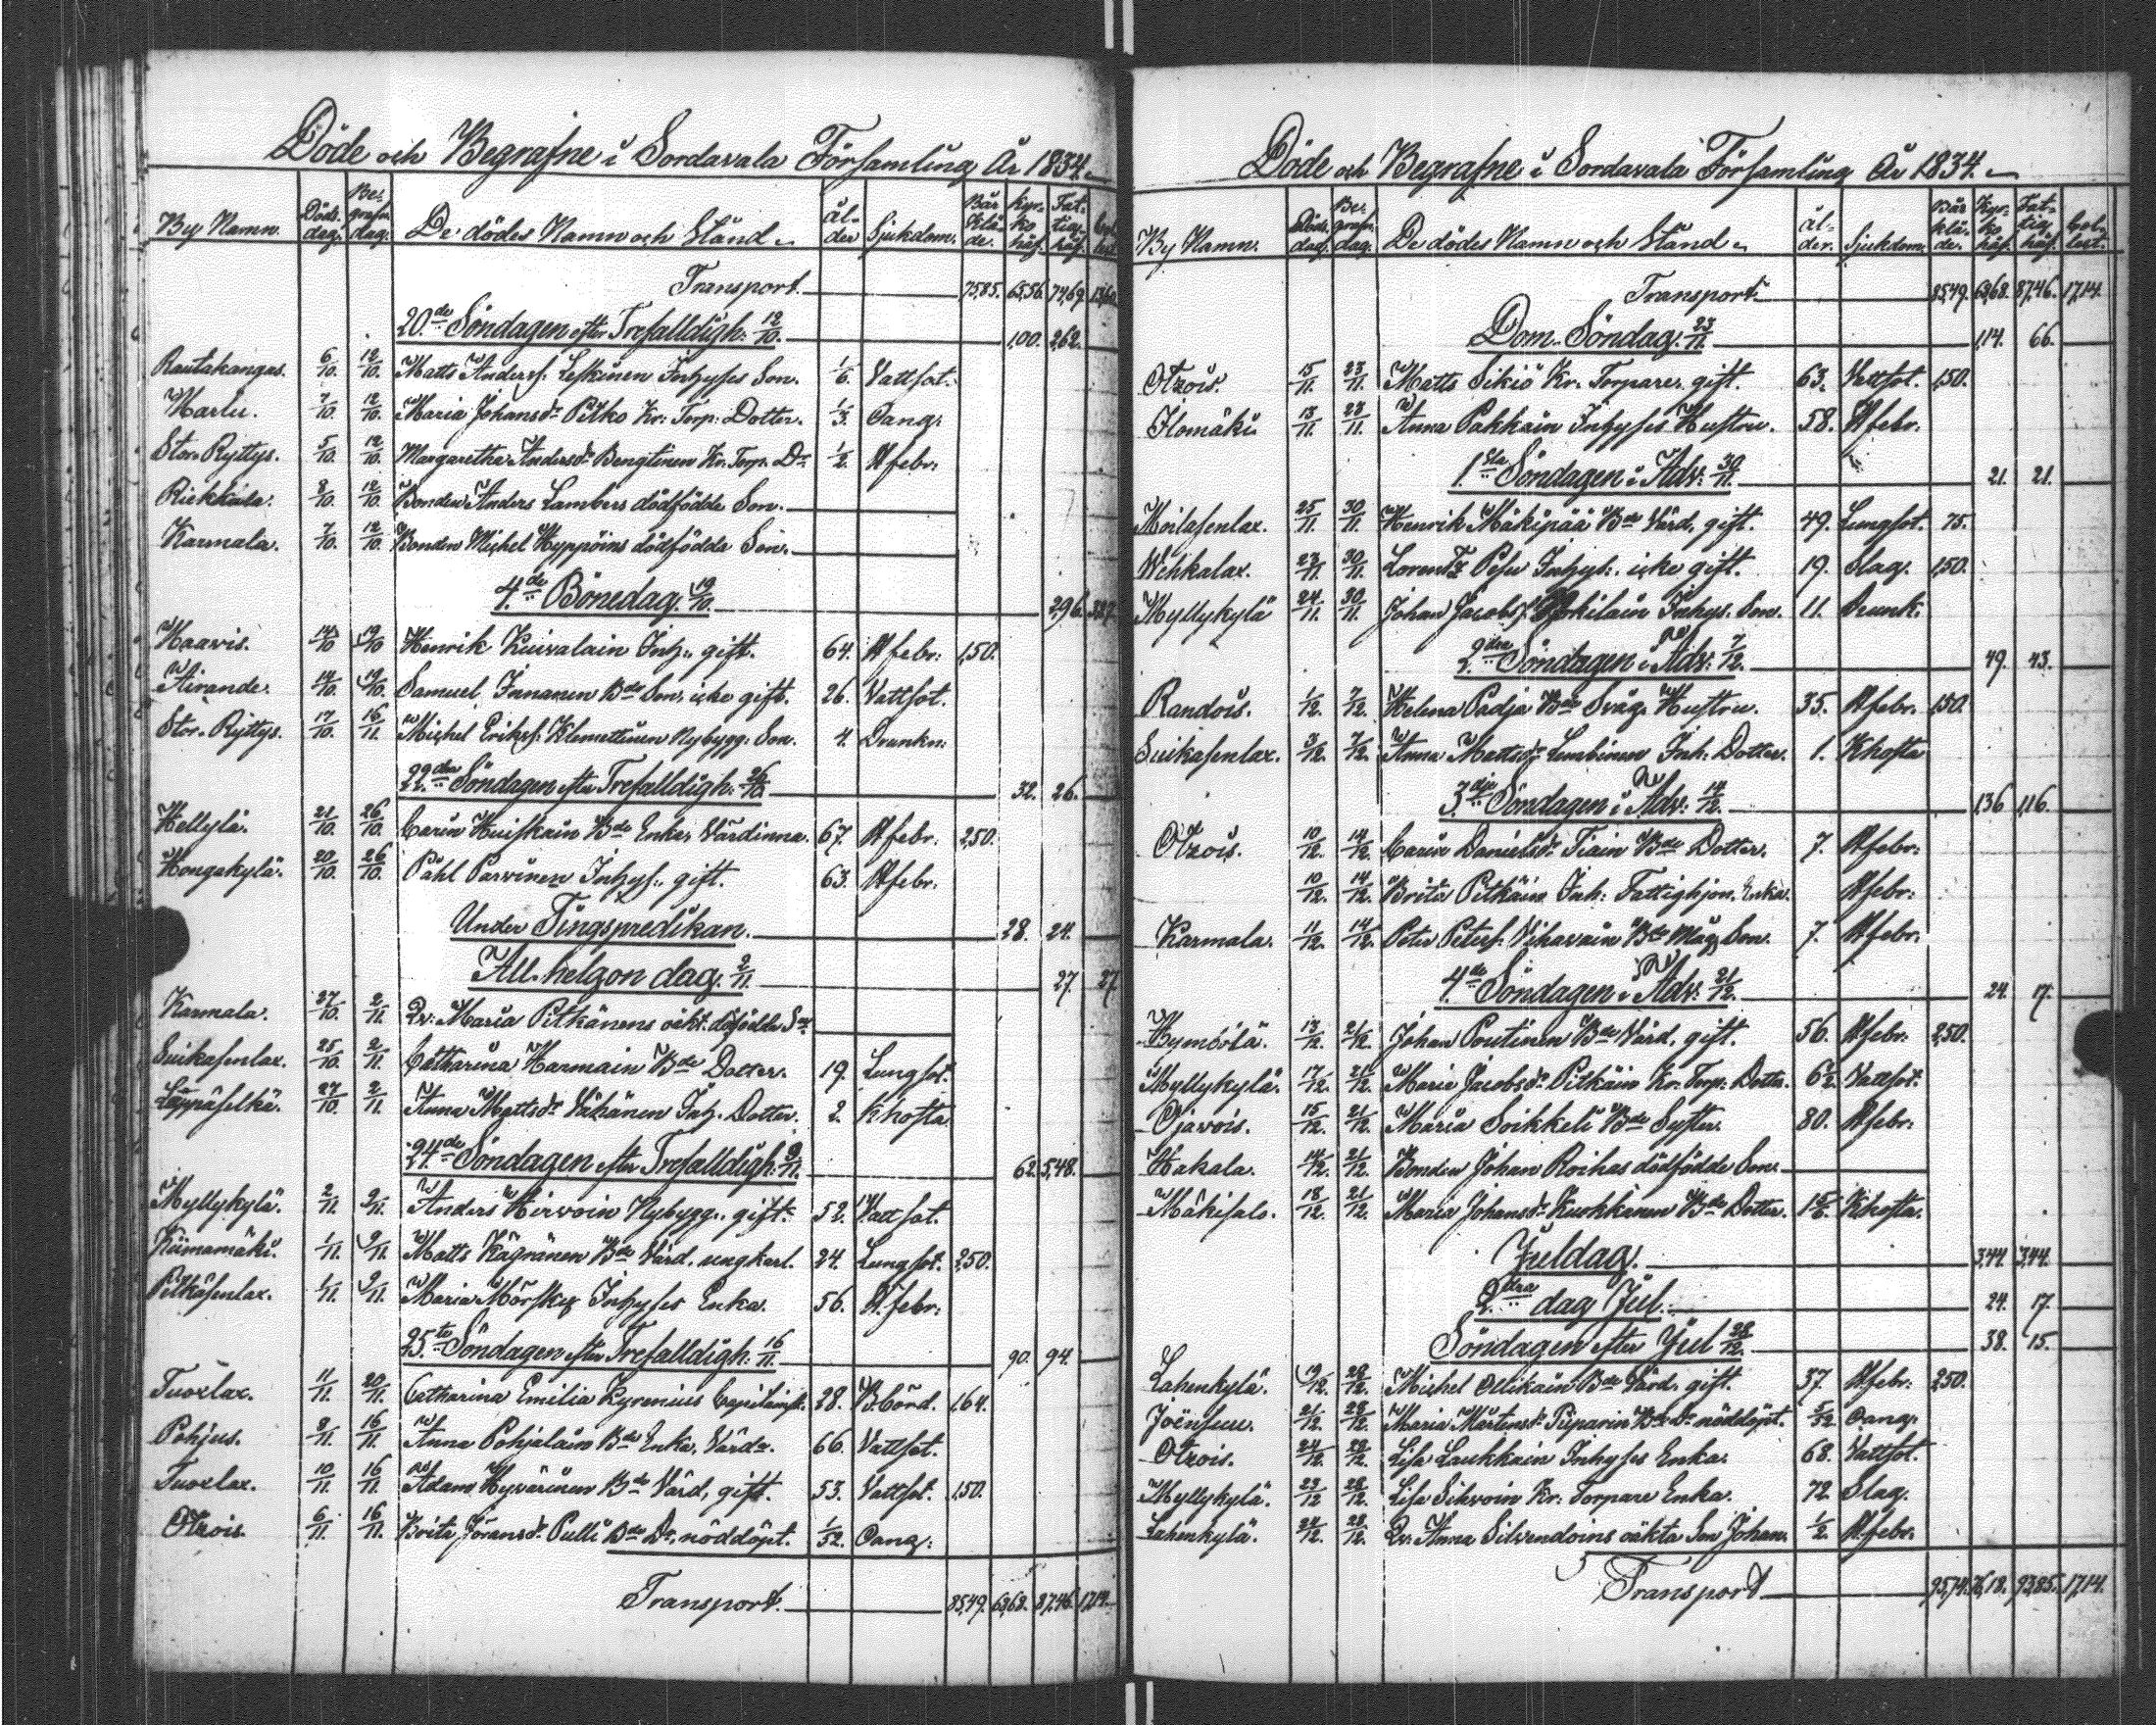 Döde och Begrafne i Sordavala Församling År 1834.
By Namn. Döds. dag. Be- grafn. dag. De dödes Namn och Stånd. Ål- der Sjukdom. Bår klä- de. Kyr- ko håf. Fat- tig- håf.
Transport. 75,85. 65,56. 74,69.
20.de Söndagen efter Trefalldigh: 12/10. 1,00. 2,62.
Rautakangas. 6/10. 12/10. Matts Andersf. Leskinen Inhyses Son. 1/6. Vattsot.
Harlu. 7/10. 12/10. Maria Johansdr Pitko Kr: Torp: Dotter. 1/3. Oang:
Stor-Ryttys. 5/10. 12/10. Margaretha Andersdr Bengtinen Kr. Torp. Dr 1/2. Hfebr:
Riekkala. 8/10. 12/10. Bonden Anders Lambers dödfödde Son.
Karmala. 7/10. 12/10. Bonden Michel Hyppöins dödfödda Son.
4.de Bönedag. 19/10. 2,96. 3,37.
Haavis. 14/10 19/10 Henrik Kuivalain Inh:, gift. 64. Hfebr: 1,50.
Airande. 14/10. 19/10. Samuel Innanen Bde Son, icke gift. 26. Vattsot.
Stor-Ryttys. 17/10. 16/11. Michel Eriksf. Klemettinen Nybygg: Son. 4. Drunkn:
22.dra Söndagen efter Trefalldigh: 26/10 32. 26.
Hellylä. 21/10. 26/10. Carin Huiskain Bde Enka, Värdinna. 67. Hfebr. 2,50.
Hongakylä. 20/10. 26/10. Påhl Parvinen Inhys:, gift. 63. Hfebr.
Under Tingspredikan. 28. 24.
All-helgon dag. 2/11. 27 27
Karmala. 27/10. 2/11. Qv: Maria Pitkänens oäkt: dödfödda Son
Suikasenlax. 25/10. 2/11. Catharina Harmain Bde Dotter. 19. Lungsot.
Läppäselkä. 27/10. 2/11. Anna Mattsdr Vähänen Inh. Dotter. 2. Khosta
24.de Söndagen efter Trefalldigh: 9/11. 62. 5,48.
Myllykylä. 2/11. 9/11. Anders Hirvoin Nybygg:, gift. 52. Vattsot.
Kiimamäki. 1/11. 9/11. Matts Kägränen Bde Värd, ungkarl. 24. Lungsot. 2,50.
Pitkäsenlax. 1/11. 9/11. Maria Mörsky Inhyses Enka. 56. Hfebr:
25.te Söndagen efter Trefalldigh: 16/11. 90. 94.
Tuoxlax. 11/11. 20/11. Catharina Emilia Kyrenius 28. Bbörd. 1,64.
Pohjus. 8/11. 16/11. Anna Pohjalain Bde Enka, Värda. 66. Vattsot.
Tuoxlax. 10/11. 16/11. Adam Hyvärinen Bde Värd, gift. 53. Vattsot. 1,50.
Otzois. 6/11. 16/11. Brita Jöransdr Pulli Bde Dr, nöddöpt. 1/52. Oang:
Transport. 85,49. 69,68. 87,46. 17,14.
Döde och Begrafne i Sordavala Församling År 1834.
By Namn. Döds. dag. Be- grafn. dag. De dödes Namn och Stånd. ål- der. Sjukdom. Bår klä- de. Kyr- ko håf. Fat- tig håf. Col- lect.
Transport. 85,49. 69,68. 87,46. 17,14.
Dom-Söndag. 23/11. 1,14. 66.
Otzois. 15/11. 23/11. Matts Sikiö Kr. Torpare, gift. 63. Vattsot. 1,50.
Ilomäki 13/11. 23/11. Anna Pakkain Inhyses Hustru. 58. Hfebr.
1.sta Söndagen i Adv: 30/11. 21. 21.
Moilasenlax. 25/11 30/11. Henrik Mäkipää Bde Värd, gift. 49. Lungsot. 75.
Wehkalax. 23/11. 30/11. Lorentz Pesu Inhys:, icke gift. 19. Slag. 1,50.
Myllykylä 24/11. 30/11. Johan Jacobsf. Inhys. Son. 11. Drunk:
2.dra Söndagen i Adv: 7/12. 49. 43.
Randois. 1/12. 7/12. Helena Padja Bde Svåg. Hustru. 35. Hfebr. 1,50.
Suikasenlax. 3/12. 7/12. Anna Mattsdr Lembinen Inh: Dotter. 1. Khosta
3.dje Söndagen i Adv: 14/12. 1,36 1,16.
Otzois. 10/12. 14/12. Carin Danielsdr Tiain Bde Dotter. 7. Hfebr:
10/12. 14/12. Brita Pitkäin Inh: Fattighjon, Enka. Hfebr:
Karmala. 11/12. 14/12. Peter Petersf. Vihavain Bde Måg Son. 7. Hfebr.
4.de Söndagen i Adv: 21/12. 24. 17.
Hymbölä. 13/12. 21/12. Johan Pontinen Bde Värd, gift. 56. Hfebr: 2,50.
Myllykylä. 17/12. 21/12. Maria Jacobsdr Pitkäin Kr. Torp. Dotter. 6 1/2. Vattsot.
Ojavois. 15/12. 21/12. Maria Soikkeli Bde Syster. 80. Hfebr:
Hakala. 14/12. 21/12. Bonden Johan Roihas dödfödde Son.
Mäkisalo. 18/12. 21/12. Maria Johansdr Kuokkanen Bde Dotter. Khosta.
Juldag. 3,44. 3,44.
2.dra dag Jul. 24. 17.
Söndagen efter Jul 28/12. 38. 15.
Lahenkylä. 19/12. 28/12. Michel Ollikain Bde Värd, gift. 37. Hfebr: 2,50.
Joënsuu. 21/12. 28/12. Maria Mårtensdr Piiparin Bde Dr nöddöpt. 5/52. Oang:
Otzois. 24/12. 28/12. Lisa Laukkain Inhyses Enka. 68. Vattsot.
Myllykylä. 23/12 28/12. Lisa Sihvoin Kr: Torpare Enka. 72. Slag.
Lahenkylä. 24/12. 28/12. Qv: Anna Silvendoins oäkta Son Johan. 1/2. Hfebr.
Transport 95,74. 76,18. 93,85. 17,14.